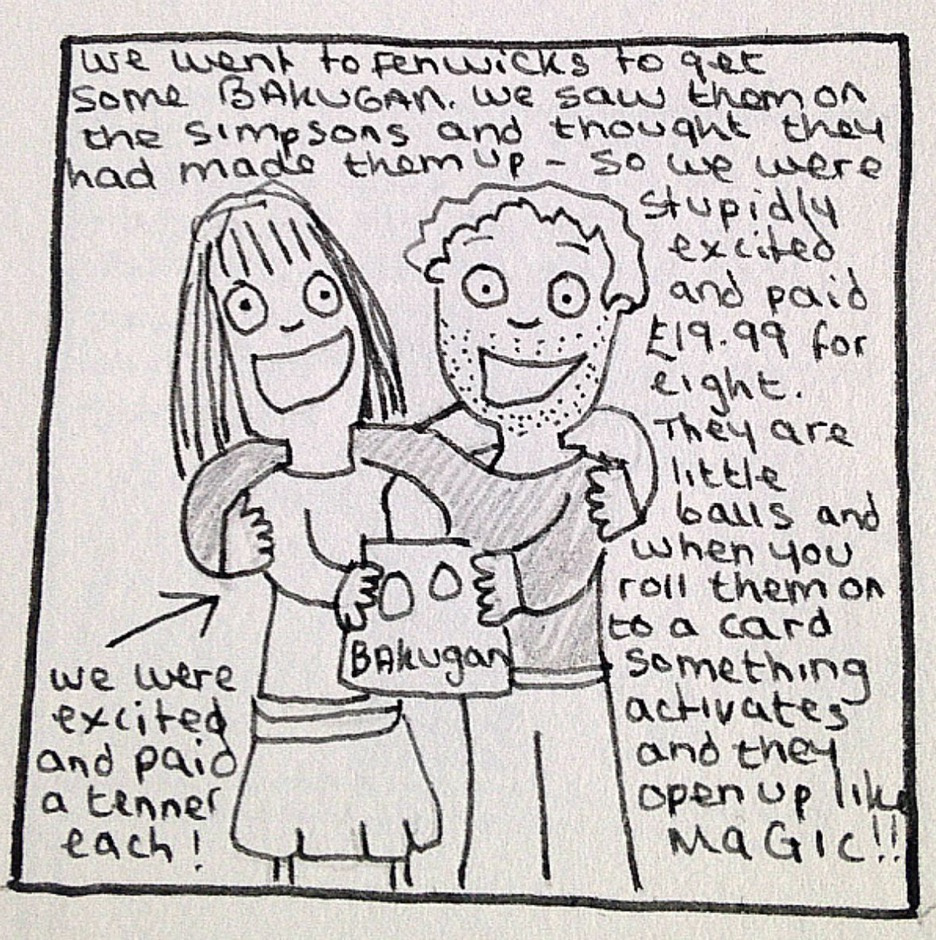 we went to fenwicks to get
some BAKUGAN. we saw them on
the simpsons and thought they
had made them up - so we were
stupidly
excited
and paid
£19.99 for
eight.
They are
little
balls and
when you
roll them on
to a card
something
activates
and they
open up like
MaGic!!
BAkugan
we were
excited
and paid
a tenner
each!